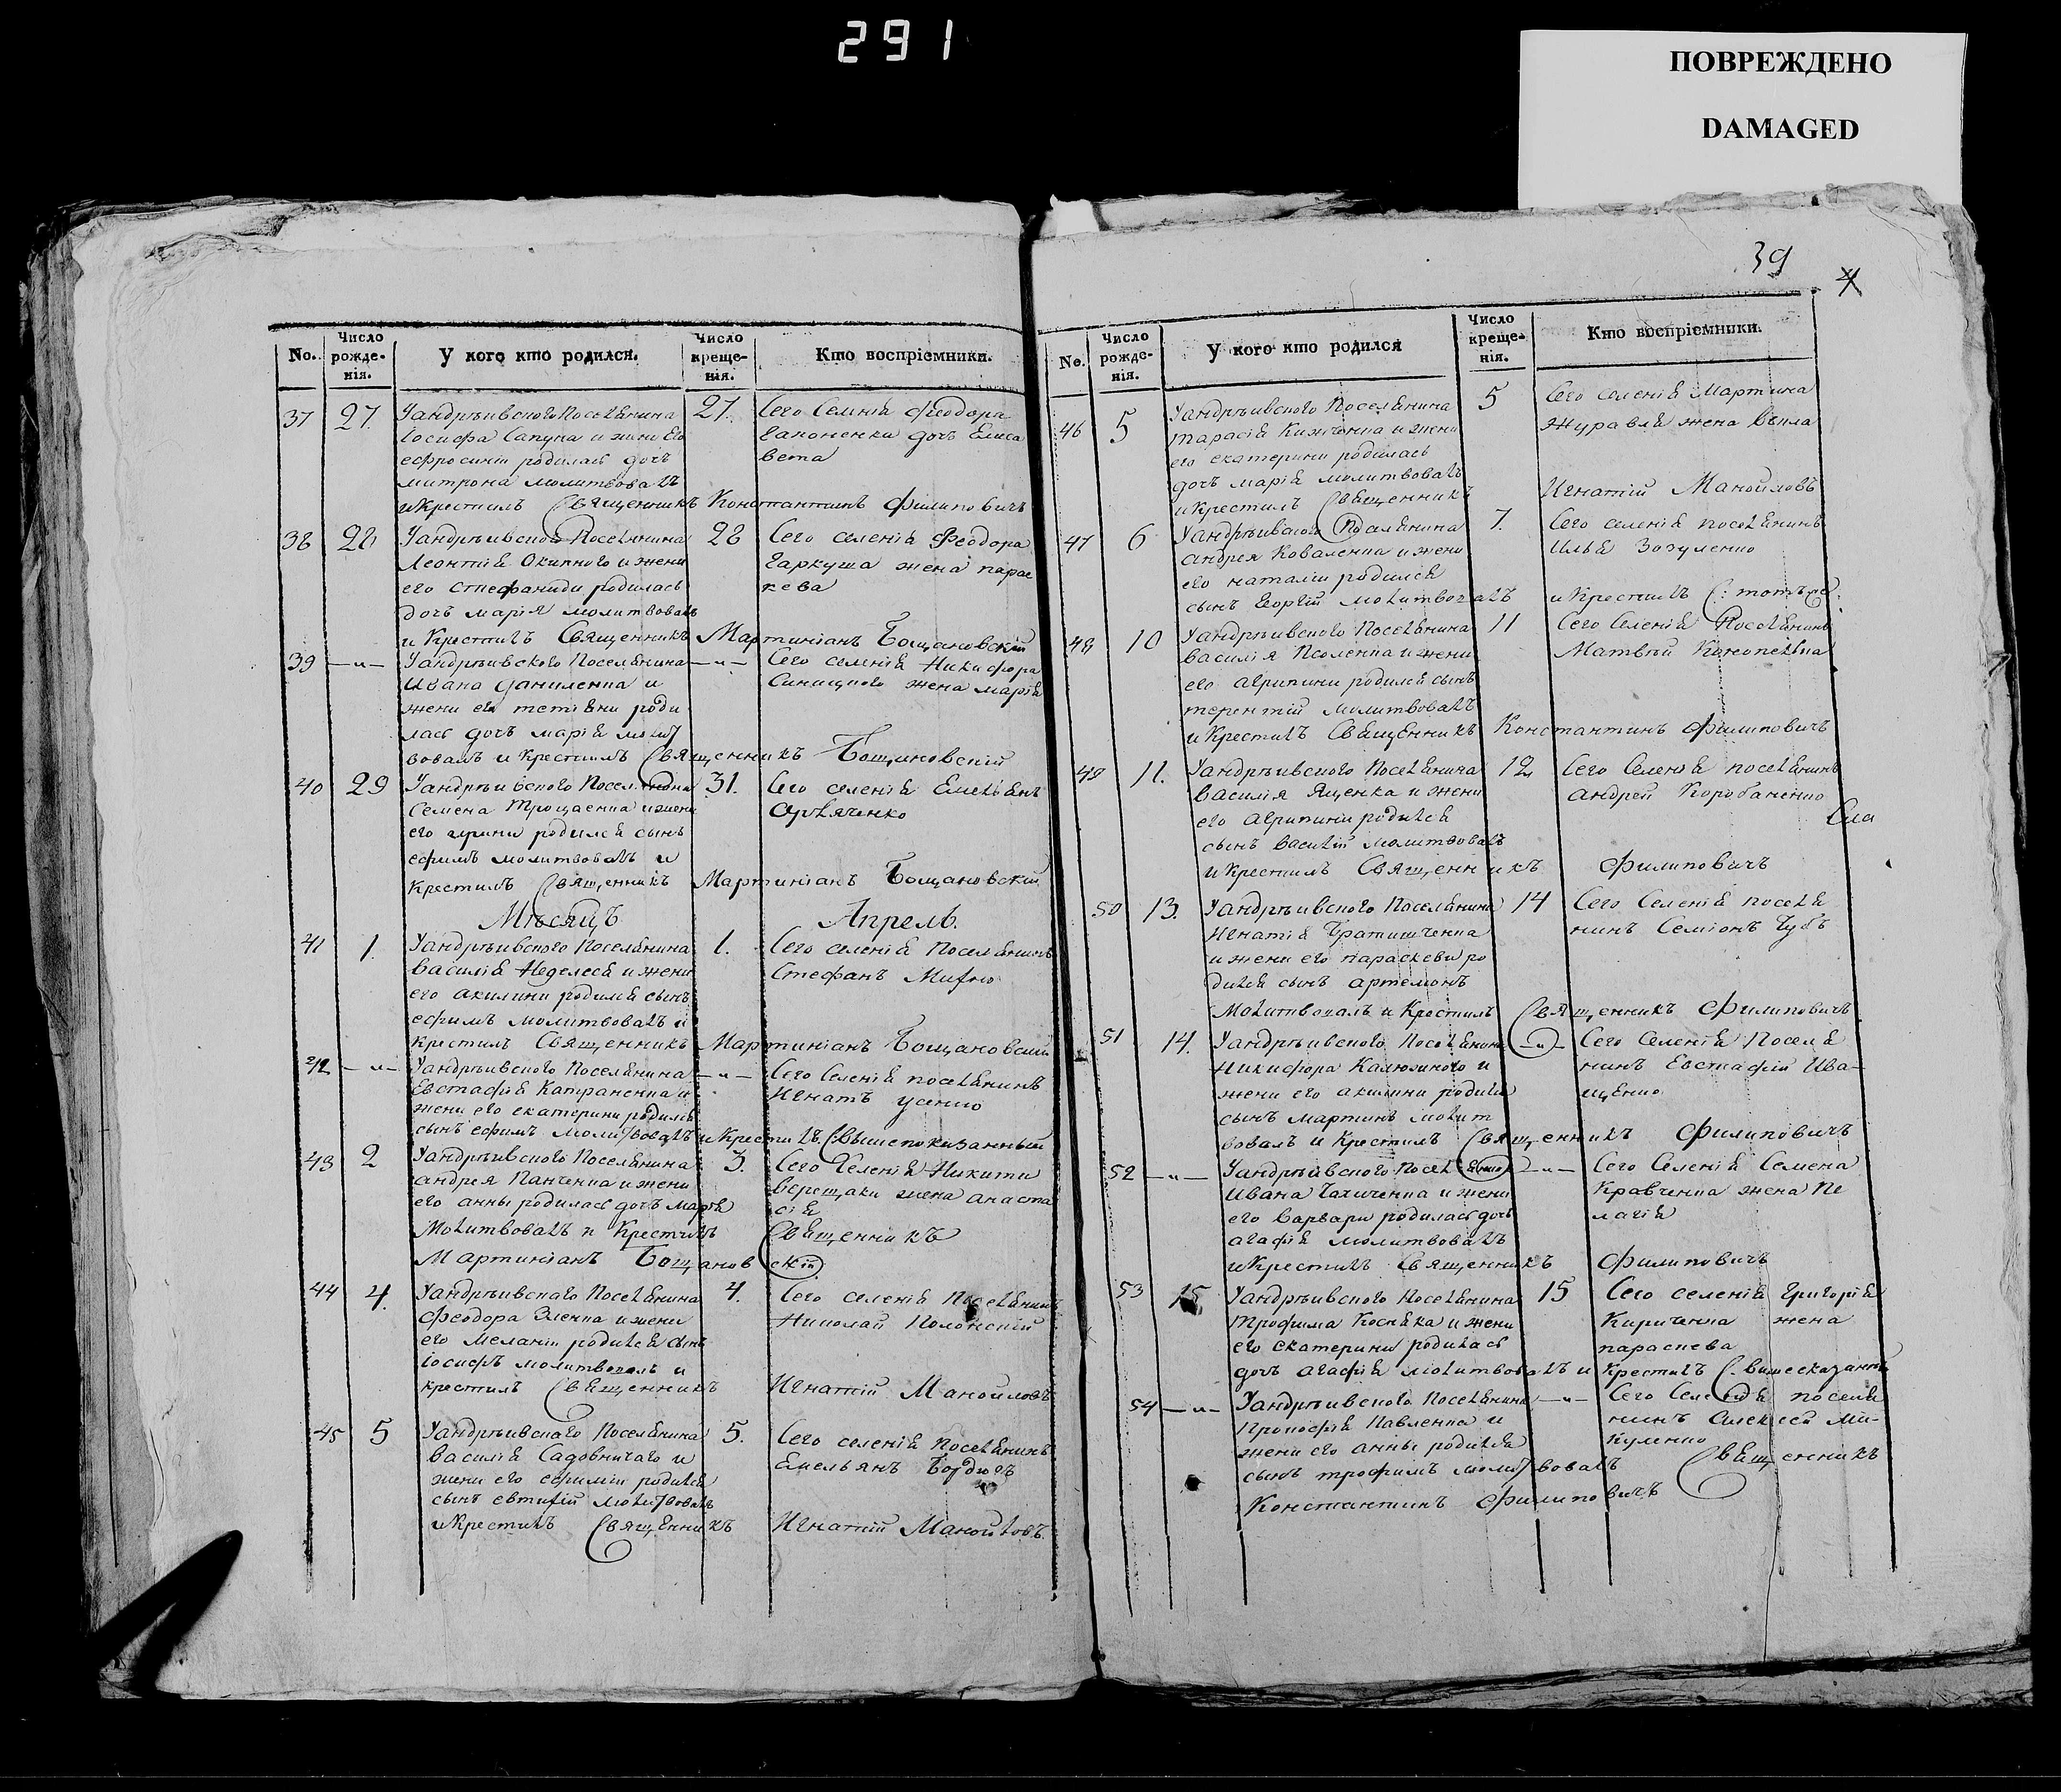 291
ПОВРЕЖДЕНО
DAMAGED
No. Число рожденія. У кого кто родился. Число крещенія. Кто воспріемники.
37 27. Уандрѣивского Поселянина 27. Сего Селенія Феодора
Іосифа Сапуна и жени Его Гапоненка дочъ Елиса
ефросиніи родилась дочъ вета
митрона молитвовалъ
и Крестилъ Священникъ Константинъ Филиповичъ
38 28 Уандрѣивского Поселянина 28 Сего селенія Феодора
Леонтія Окипного и жени Гаркуша жена парас
его стефаниди родилась кева
дочъ марія молитвовалъ
и Крестилъ Священникъ Мартиніанъ Бощановскій
39 —"— Уандрѣивского Поселянина —"— Сего селенія Никифора
Ивана даниленка и Синицного жена марія
жени его тетіяни роди
лась дочъ марія молит
вовалъ и Крестилъ Священникъ Бощановскій
40 29 Уандрѣивского Поселянина 31. Сего селенія Емелянъ
Семена Трощаенка и жени
его ирини родился сынъ
ефимъ молитвовалъ и
Крестилъ Священникъ Мартиніанъ Бощановскій
Мѣсяцъ Апрель.
41 1. Уандрѣивского Поселянина 1. Сего селенія Поселянинъ
Василія Неделея и жени Стефанъ
его акилини родился сынъ
ефимъ молитвовалъ и
крестилъ Священникъ Мартиніанъ Бощановскій
42 —"— Уандрѣивского Поселянина —"— Сего Селенія поселянинъ
Евстафія Катраненка и Игнатъ усенко
жени его екатерини родился
сынъ ефимъ молитвовалъ и Крестилъ Свышепоказанный
43 2 Уандрѣивского Поселянина 3. Сего Селенія Никити
андрея Панченка и жени верещаки жена анаста
его анны родилась дочъ марія сія
Молитвовалъ и Крестилъ Священникъ
Мартиніанъ Бощановскій
44 4. Уандрѣивскаго Поселянина 4. Сего селенія Поселянинъ
Феодора Зленка и жени Николай Полонскій
его меланіи родился сынъ
іосифъ молитвовалъ и
крестилъ Священникъ Игнатій Манойловъ
45 5 Уандрѣивскаго Поселянина 5. Сего селенія Поселянинъ
Василія Садовничаго и Емельянъ Бордюгъ
жени его ефиміи родился
сынъ евтихій молитвовалъ
и Крестилъ Священникъ Игнатій Манойловъ.
39
No. Число рожденія. У кого кто родился Число крещенія. Кто воспріемники.
46 5 Уандрѣивского Поселянина 5 Сего селенія Мартина
тарасія Кижченка и жени Журавля жена Векла
его екатерини родилась
дочъ марія молитвовалъ
и крестилъ Священникъ Игнатій Манойловъ
47 6 Уандрѣивского Поселянина 7. Сего селенія поселянинъ
андрея Коваленка и жени Илья Зозуленко
его наталіи родился
сынъ Георгій молитвовалъ и Крестилъ Стотъже
48 10 Уандрѣивского Поселянина 11 Сего Селенія Поселянинъ
василія Псоленка и жени Матвѣй
его агрипини родился сынъ
терентій молитвовалъ
и Крестилъ Священникъ Константинъ Филиповичъ
49 11. Уандрѣивского Поселянина 12 Сего Селенія поселянинъ
василія Ященка и жени андрей Коробаненко
его агрипини родился
сынъ Василій молитвовалъ
и Крестилъ Священникъ Филиповичъ
50 13. Уандрѣивского Поселянина 14 Сего Селенія поселя
Игнатія Братишченка нинъ Семіонъ Губъ
и жени его параскеви ро
дился сынъ артемонъ
Молитвовалъ и Крестилъ Священникъ Филиповичъ
51 14. Уандрѣивского Поселянина —"— Сего Селенія Поселя
Никифора Калюжного и нинъ Евстафій Ива-
жени его акилини родился щенко
сынъ мартинъ молит
вовалъ и Крестилъ Священникъ Филиповичъ
52 —"— Уандрѣивского Поселянина —"— Сего Селенія Семена
Ивана и жени Кравченка жена Пе
его варвари родилась дочъ лагія
агафія молитвовалъ
и Крестилъ Священникъ Филиповичъ
53 15 Уандрѣивского Поселянина 15 Сего селенія Григорія
Трофима Косяка и жени Кириченка жена
его екатерини родилась параскева
дочъ агафія молитвовалъ и Крестилъ Свишесказаный
54 —"— Уандрѣивского Поселянина —"— Сего Селенія поселя
Прокофія Павленка и нинъ Алексей Ми-
жени его анны родился куленко
сынъ трофимъ молитвовалъ Священникъ
Константинъ Филиповичъ